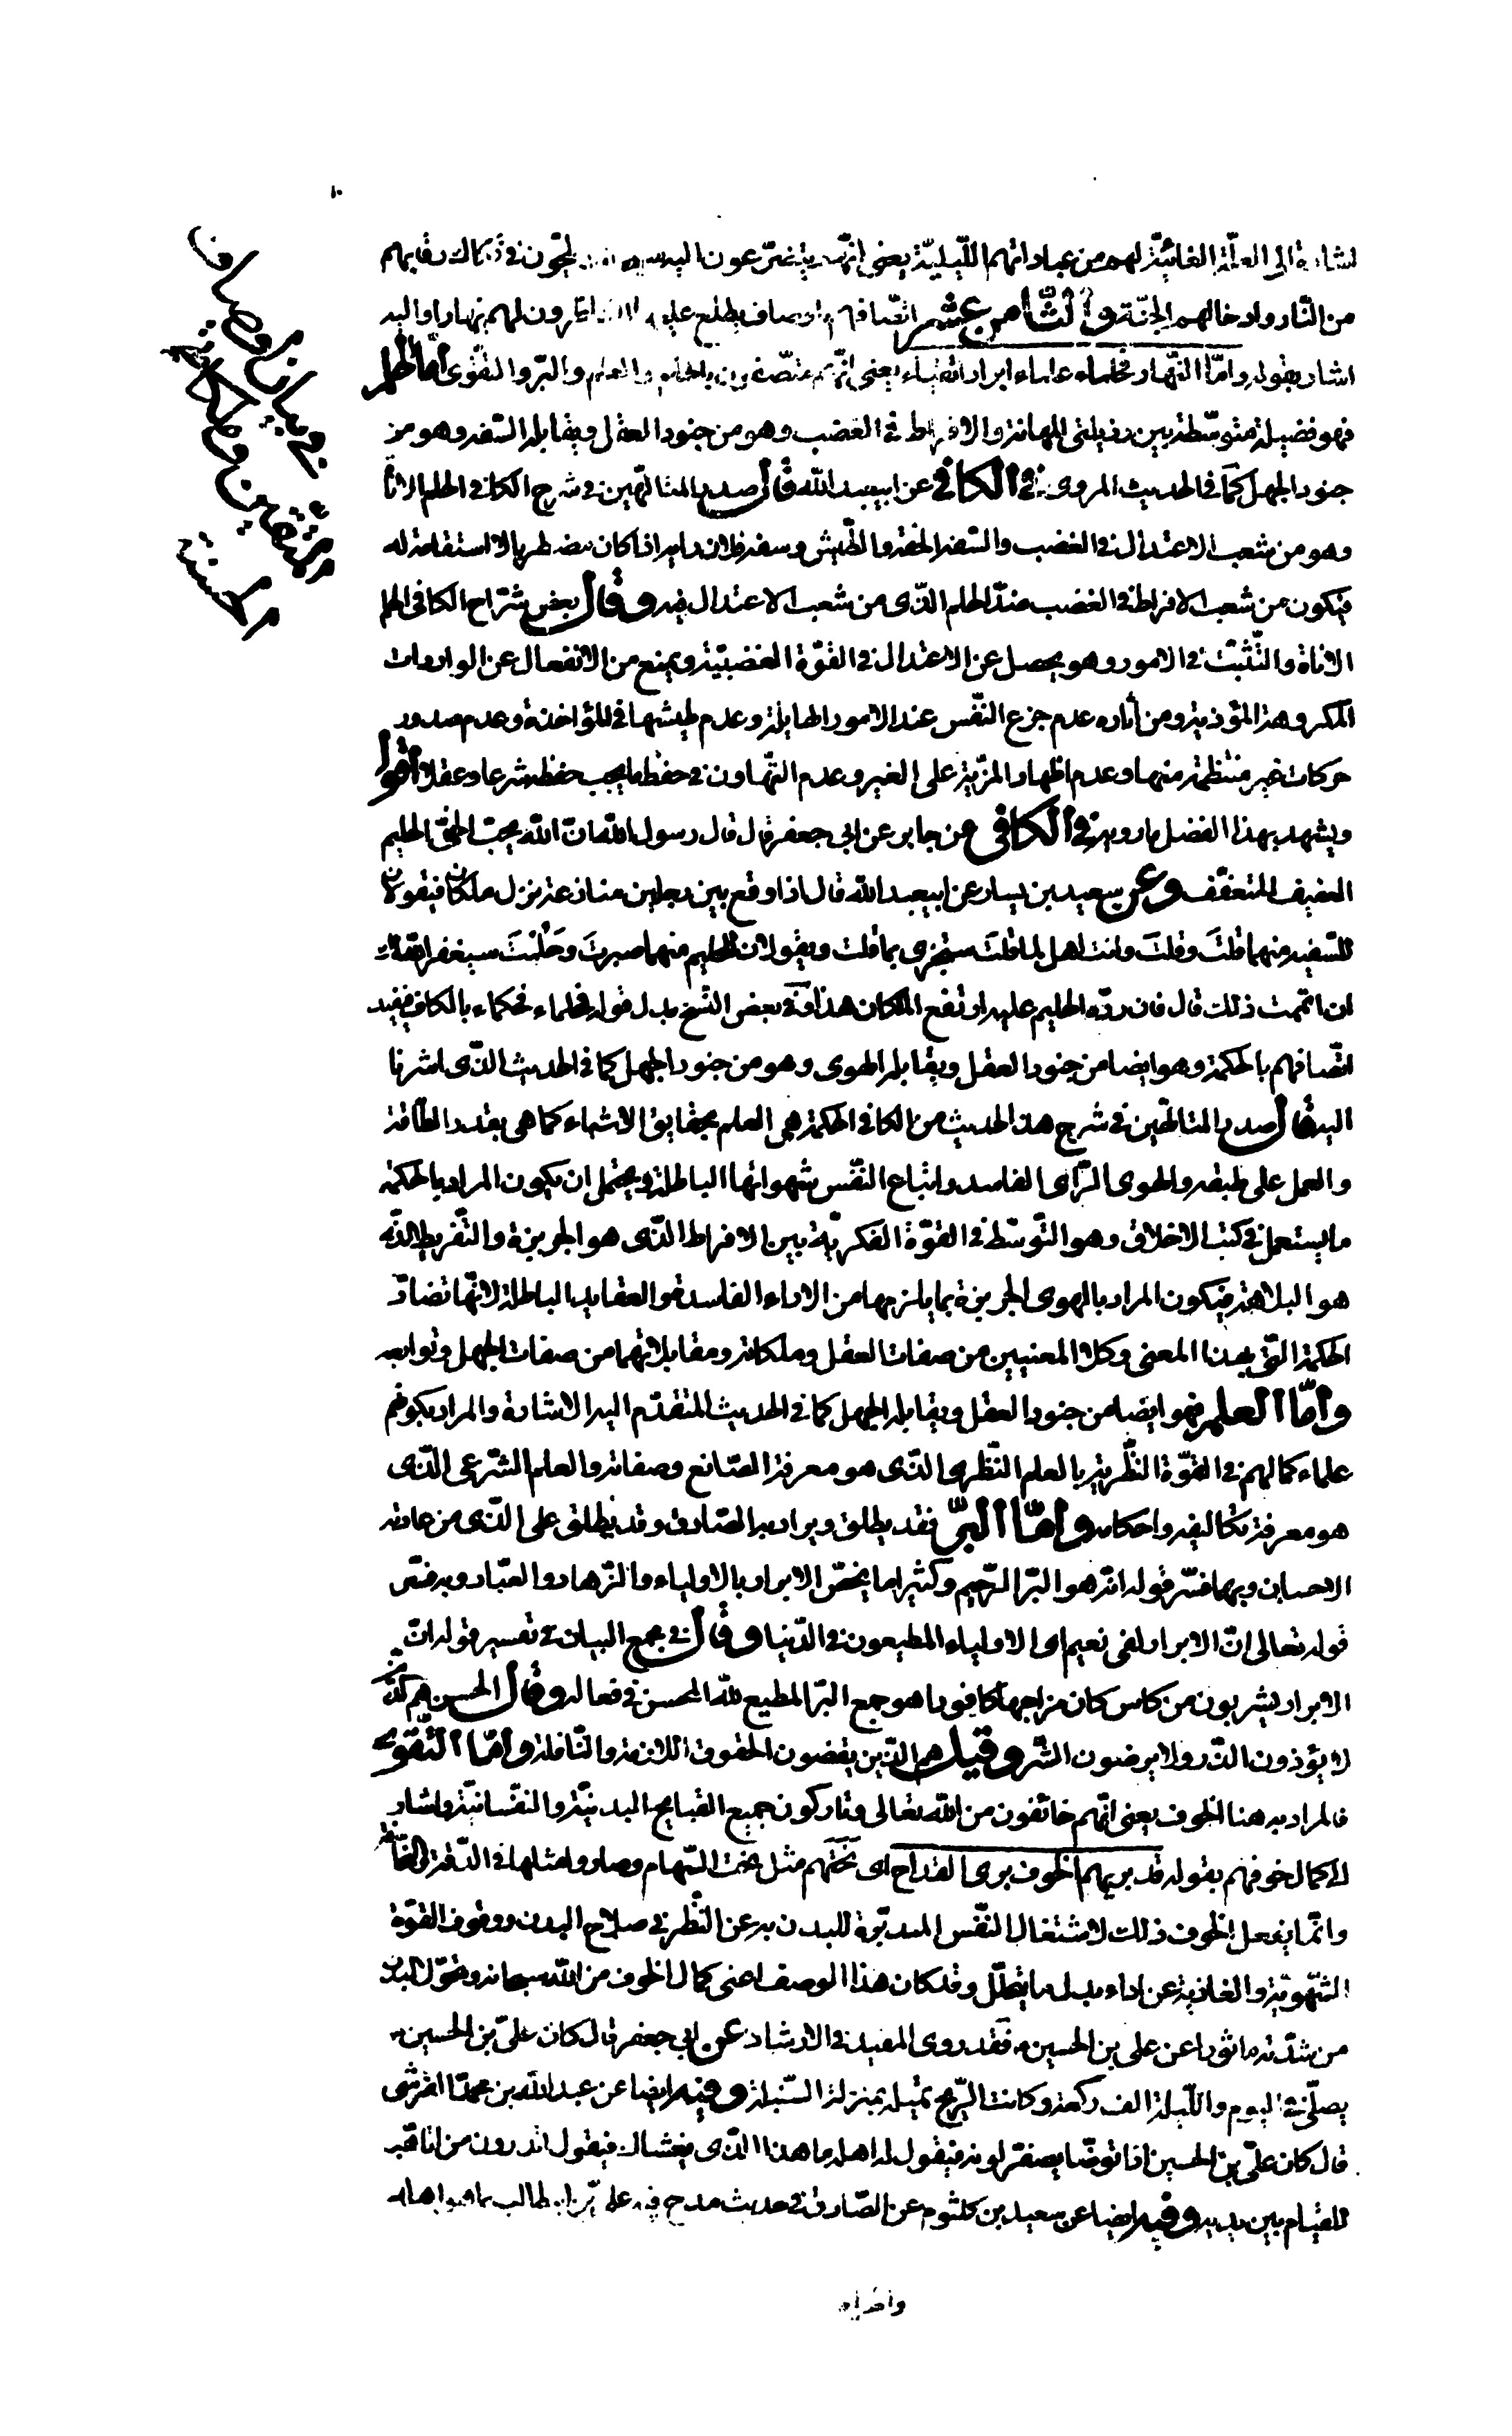 اشارة الى العلّة الغائيّة لهم من عباداتهم اللّيليّة يعنى انّهم يتضرّعون اليه سبحانه و يلحّون فى فكاك رقابهم
من النّار و ادخالهم الجنّة و الثّامن عشر اتّصافهم باوصاف يطّلع عليها النّاظرون لهم نهارا و اليه
اشار بقوله و امّا النّهار فحلماء علماء ابرار اتقياء يعنى انّهم متّصفون بالحلم و العلم و البرّ و التقوى امّا الحلم
فهو فضيلة متوسّطة بين رذيلتى المهانة و الافراط فى الغضب و هو من جنود العقل و يقابله السّفه و هو من
جنود الجهل كما فى الحديث المروى فى الكافى عن ابيعبد الله قال صدر المتالّهين فى شرح الكافى الحلم الاناة
و هو من شعب الاعتدال فى الغضب و السّفه الخفة و الطّيش و سفه فلان رايه اذا كان مضطربا لا استقامة له
فيكون من شعب الافراط فى الغضب ضدّ الحلم الّذى من شعب الاعتدال فيه و قال بعض شرّاح الكافى الحلم
الاناة و التّثبّت فى الامور و هو يحصل عن الاعتدال فى القوّة الغضبيّة و يمنع من الانفعال عن الواردات
المكروهة المؤذية و من آثاره عدم جزع النّفس عند الامور الهايلة و عدم طيشها فى المؤاخذة و عدم صدور
حركات غير منتظمة منها و عدم اظهار المزيّة على الغير و عدم التّهاون فى حفظ ما يجب حفظه شرعا و عقلا اقول
و يشهد بهذا الفضل ما رويه فى الكافى عن جابر عن ابى جعفر قال قال رسول الله انّ الله يحبّ الحىّ الحليم
العفيف المتعفّف و عن سعيد بن يسار عن ابيعبد الله قال اذا وقع بين رجلين منازعة نزل ملكان فيقولان
للسّفيه منهما قلتَ و قلتَ و انت اهل لما قلتَ ستجزى بما قلت و يقولان للحليم منهما صبرتَ و حَلُمْتَ سيغفر الله لك
ان اتممت ذلك قال فان ردّه الحليم عليه ارتفع الملكان هذا و فى بعض النّسخ بدل قوله فحلماء فحكماء بالكاف فيفيد
اتّصافهم بالحكمة و هو ايضا من جنود العقل و يقابله الهوى و هو من جنود الجهل كما فى الحديث الّذى اشرنا
اليه قال صدر المتالّهين فى شرح هذا الحديث من الكافى الحكمة هى العلم بحقايق الاشياء كما هى بقدر الطّاقة
و العمل على طبقه و الهوى الرّاى الفاسد و اتباع النّفس شهواتها الباطلة و يحتمل ان يكون المراد بالحكمة
ما يستعمل فى كتب الاخلاق و هو التّوسّط فى القوّة الفكريّة بين الافراط الّذى هو الجربزة و التّفريط الّذى
هو البلاهة فيكون المراد بالهوى الجربزة بما يلزمها من الاراء الفاسدة و العقايد الباطلة لانّها تضادّ
الحكمة الّتى بهذا المعنى و كلا المعنيين من صفات العقل و ملكاته و مقابلاتهما من صفات الجهل و توابعه
و امّا العلم فهو ايضا من جنود العقل و يقابله الجهل كما فى الحديث المتقدّم اليه الاشارة و المراد بكونهم
علماء كمالهم فى القوّة النّظريّة بالعلم النّظرى الّذى هو معرفة الصّانع و صفاته و العلم الشّرعى الّذى
هو معرفة تكاليفه و احكامه و امّا البرّ فقد يطلق و يراد به الصّادق و قد يطلق على الّذى من عادته
الاحسان و بهما فسّر قوله انّه هو البرّ الرّحيم و كثيرا ما يخصّ الابرار بالاولياء و الزّهاد و العبّاد و به فسّر
قوله تعالى انّ الابرار لفى نعيم اى الاولياء المطيعون فى الدّنيا و قال فى مجمع البيان فى تفسير قوله انّ
الابرار يشربون من كاس كان مزاجها كافورا هو جمع البرّ المطيع لله المحسن فى فعاله و قال الحسن هم الّذين
لا يؤذون الذّر و لا يرضون الشّر و قيل هم الّذين يقضون الحقوق اللازمة و النّافلة و امّا التّقوى
فالمراد به هنا الخوف يعنى انّهم خائفون من الله تعالى و تاركون جميع القبايح البدنيّة و النفسانيّة و اشار
الى كمال خوفهم بقوله قد بريهم الخوف برى القداح اى نحتهم مثل نحت السّهام و صاروا مثلها فى الدّقة و النّحافة
و انّما يفعل الخوف ذلك لاشتغال النّفس المدبّرة للبدن به عن النّظر فى صلاح البدن و وقوف القوّة
الشّهويّة و الغاذية عن اداء بدل ما يتحلّل و قد كان هذا الوصف اعنى كمال الخوف من الله سبحانه و نحول البدن
من شدّته ماثورا عن على بن الحسين فقد روى المفيد فى الارشاد عن ابى جعفر قال كان علىّ بن الحسين
يصلّى فى اليوم و اللّيلة الف ركعة و كانت الرّيح تميله بمنزلة السّنبلة و فيه ايضا عن عبد الله بن محمّد القرشى
قال كان علىّ بن الحسين اذا توضّا يصفرّ لونه فيقول له اهله ما هذا الّذى يغشاك فيقول اتدرون من اتاهّب
للقيام بين يديه و فيه ايضا عن سعيد بن كلثوم عن الصّادق فى حديث مدح فيه علىّ بن ابيطالب بما هو اهله